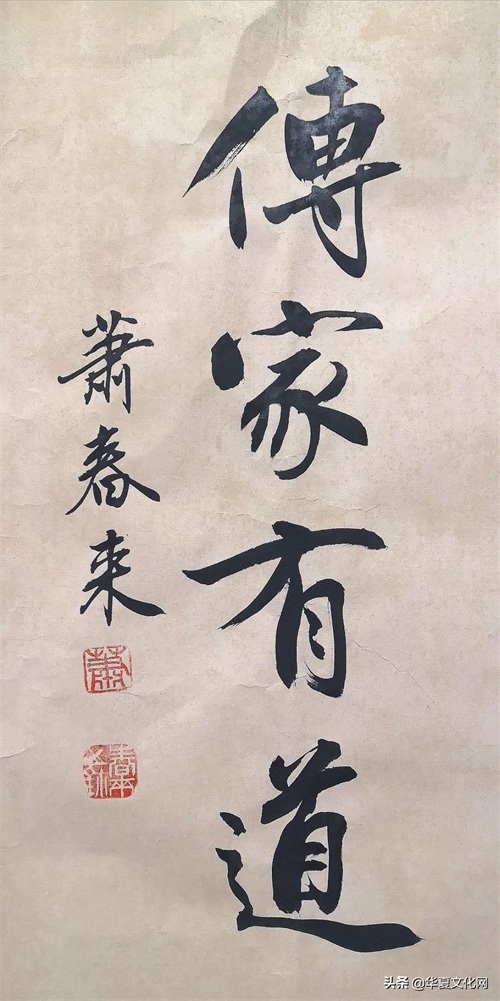 傳家有道
蕭春来
蕭
头条 @华夏文化网